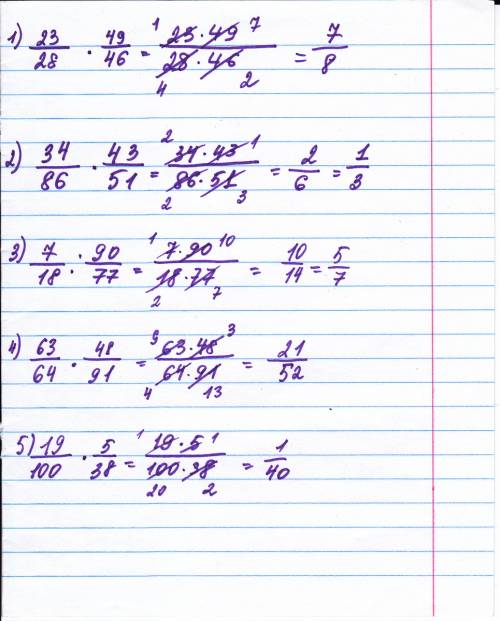 1) 23/28 · 49/46 = ¹ 23·49 ⁷ / ₄ 28·46 ₂ = 7/8
2) 34/86 · 43/51 = ² 34·43 ¹ / ₂ 86·51 ₃ = 2/6 = 1/3
3) 7/18 · 90/77 = ¹ 7·90 ¹⁰ / ₂ 18·77 ₇ = 10/14 = 5/7
4) 63/64 · 48/91 = ⁹ 63·48 ³ / ₄ 64·91 ₁₃ = 21/52
5) 19/100 · 5/38 = ¹ 19·5 ¹ / ₂₀ 100·38 ₂ = 1/40